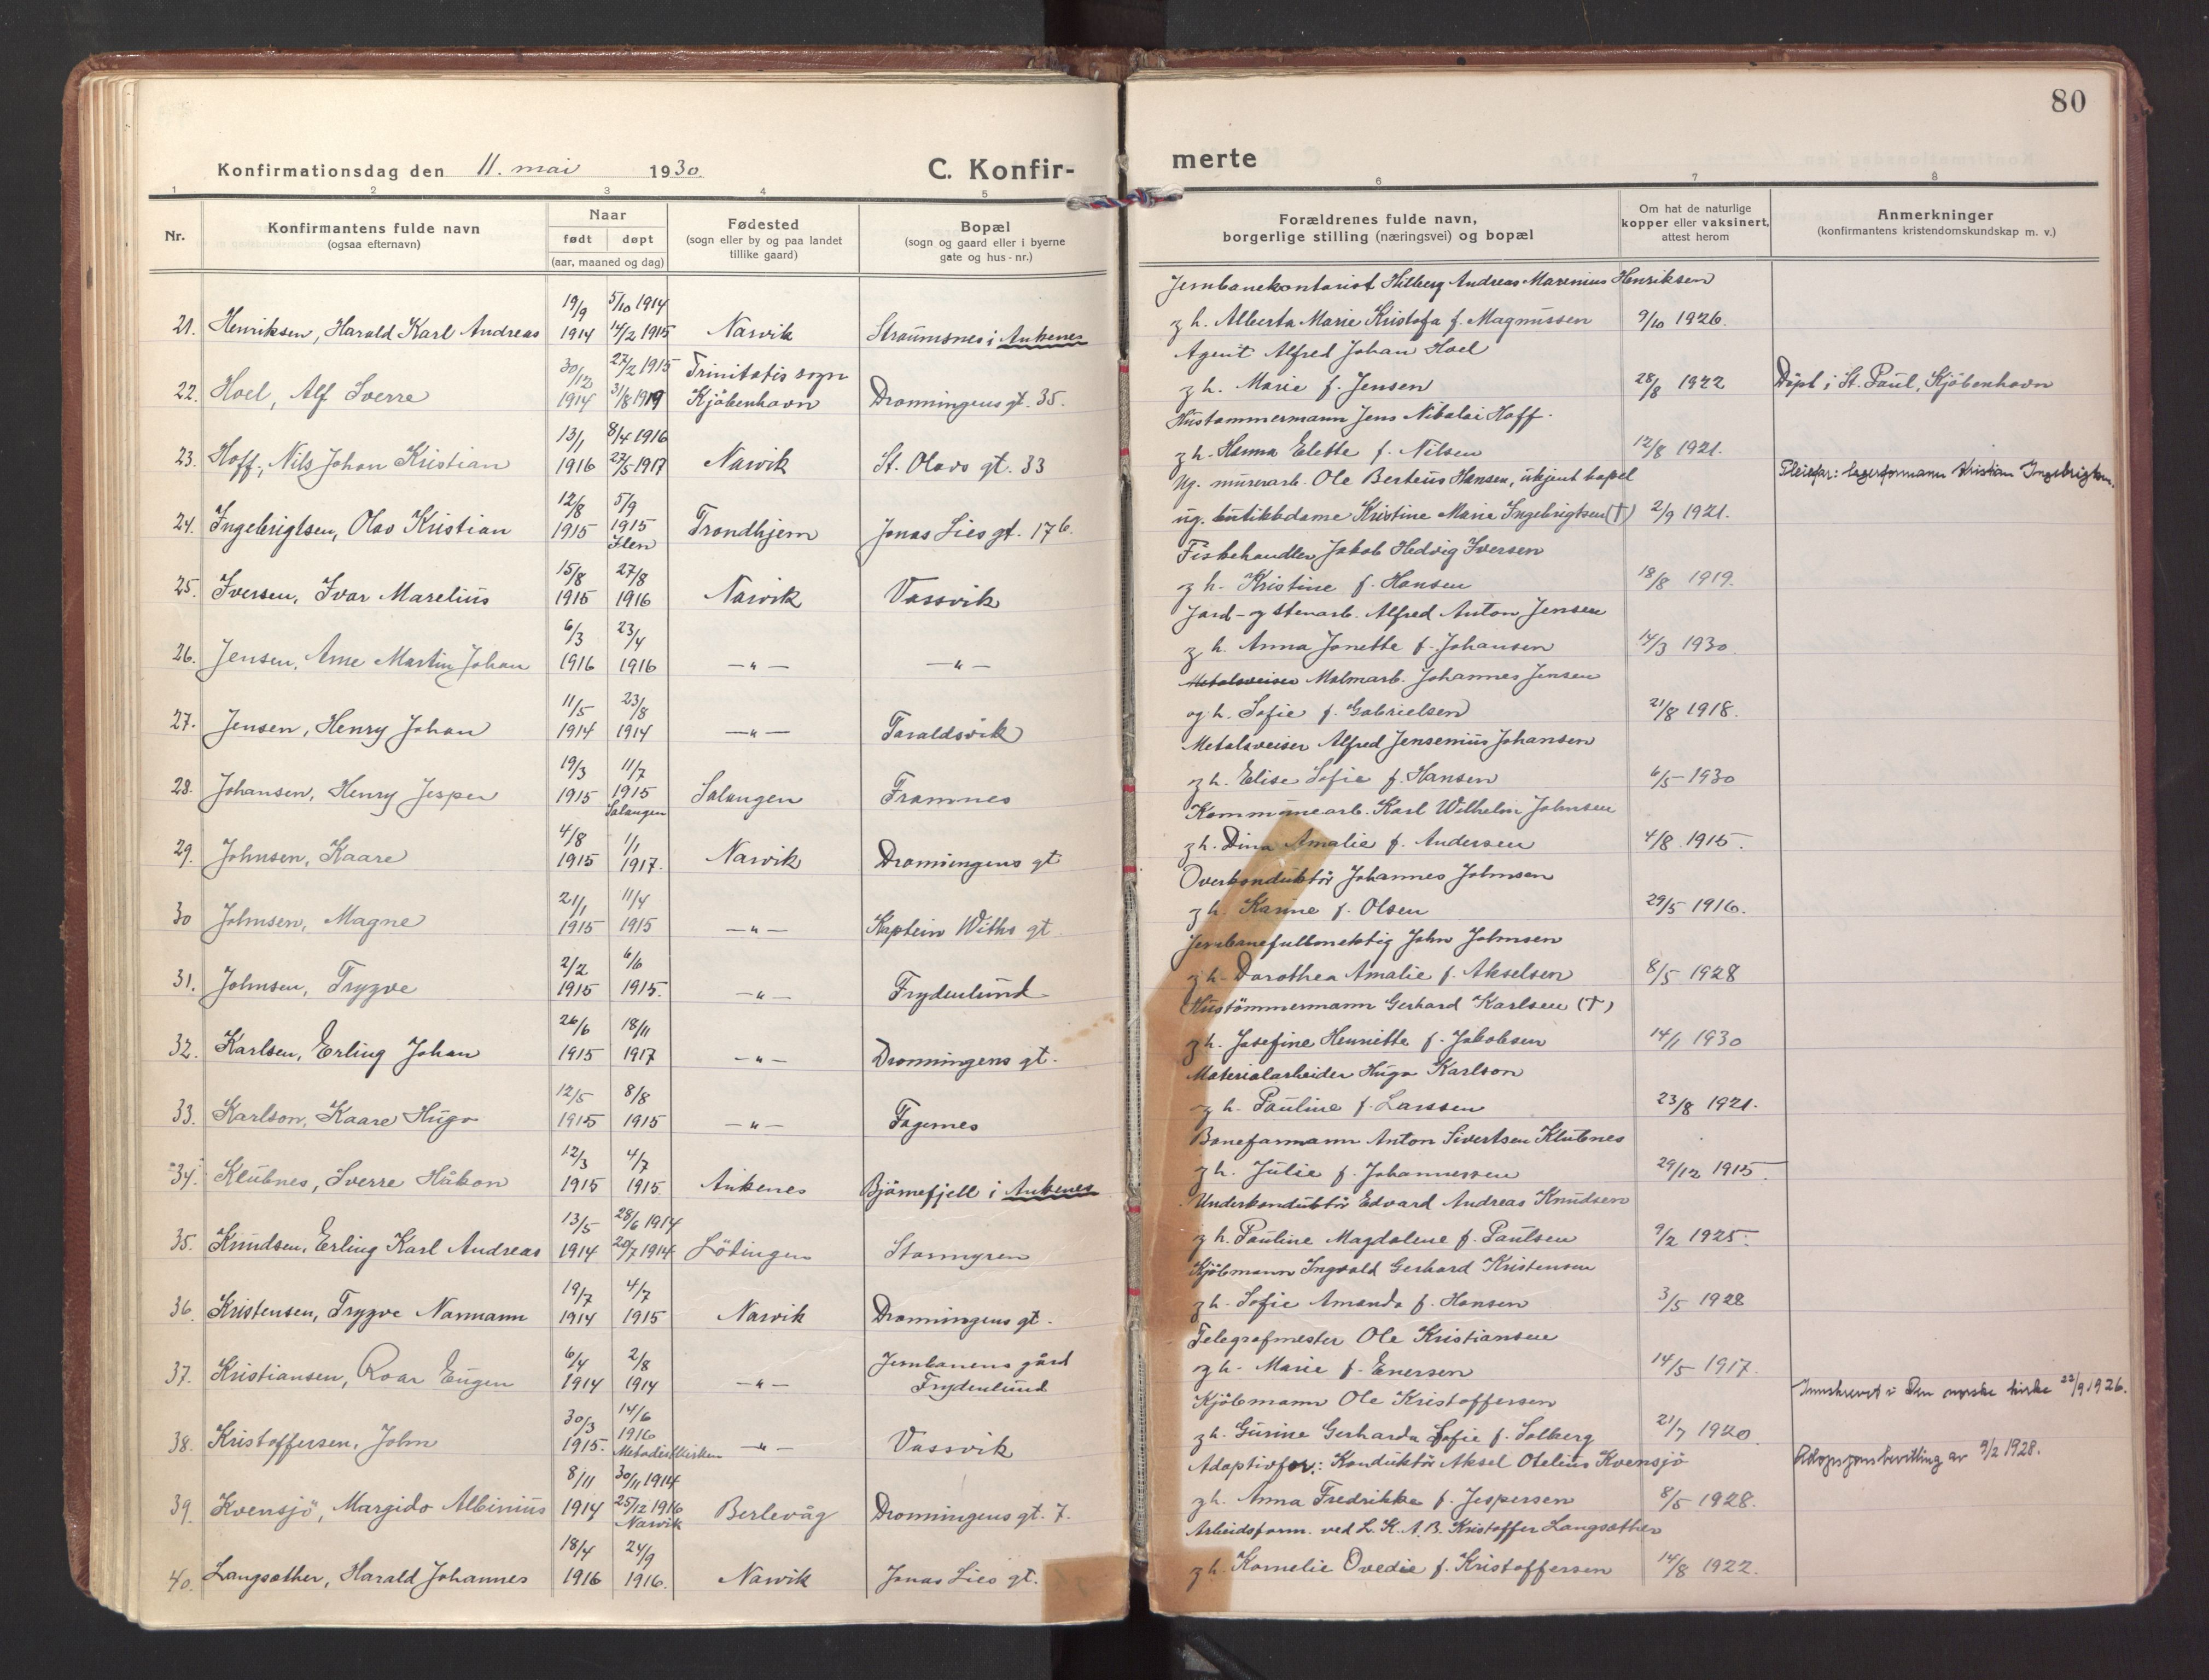 80
Konfirmationsdag den 11. mai 1930.
C. Konfir-
merte
1 2 3 4 5 6 7 8
Nr.
Konfirmantens fulde navn
(ogsaa efternavn)
Naar
født døpt
(aar, maaned og dag)
Fødested
(sogn eller by og paa landet
tillike gaard)
Bopæl
(sogn og gaard eller i byerne
gate og hus-nr.)
Forældrenes fulde navn,
borgerlige stilling (næringsvei) og bopæl
Om hat de naturlige
kopper eller vaksinert,
attest herom
Anmerkninger
(konfirmantens kristendomskundskap m. v.)
Jernbanekontorist Hilberg Andreas Marenius Henriksen
19/9 5/10 1914
21. Henriksen, Harald Karl Andreas 1914 14/2 1915 Narvik Straumsnes i Ankenes og h. Alberta Marie Kristofa f. Magnussen 9/10 1926.
30/12 27/2 1915 Trinitatis sogn Agent Alfred Johan Hoel
22. Hoel, Alf Sverre 1914 31/8 1919 Kjöbenhavn Dronningens gt. 35. og h. Marie f. Jensen 28/8 1922 Döpt i St. Paul, Kjöbenhavn
13/1 8/4 1916 Hustømmermann Jens Nikolai Hoff.
23. Hoff, Nils Johan Kristian 1916 27/5 1917 Narvik St. Olavs gt. 33 og h. Hanna Elette f. Nilsen 12/8 1921.
12/8 5/9 Ug. murerarb. Ole Berteus Hansen, ukjent bopel Pleiefar: lagerformann Kristian Ingebrigtsen.
24. Ingebrigtsen, Olav Kristian 1915 1915 Trondhjem Jonas Lies gt. 17 b. ug. butikkdame Kristine Marie Ingebrigtsen (†) 2/9 1921.
Ilen
15/8 27/8 Fiskehandler Jakob Hedvig Iversen
25. Iversen, Ivar Marelius 1915 1916 Narvik Vassvik og h. Kristine f. Hansen 18/8 1919.
6/3 23/4 Jord- og stenarb. Alfred Anton Jensen
26. Jensen, Arne Martin Johan 1916 1916 —"— —"— og h. Anna Jonette f. Johansen 14/3 1930.
11/5 23/8 Metalsveiser Malmarb. Johannes Jensen
27. Jensen, Henry Johan 1914 1914 —"— Taraldsvik og h. Sofie f. Gabrielsen 21/8 1918.
19/3 11/7 Metalsveiser Alfred Jensenius Johansen
28. Johansen, Henry Jesper 1915 1915 Salangen Framnes og h. Elise Sofie f. Hansen 6/5 1930
Salangen
4/8 1/1 Kommunearb. Karl Wilhelm Johnsen
29. Johnsen, Kaare 1915 1917. Narvik Dronningens gt og h. Dina Amalie f. Andersen 4/8 1915.
21/1 11/4 Overkonduktör Johannes Johnsen
30 Johnsen, Magne 1915 1915 —"— Kaptein Withs gt. og h. Karine f. Olsen 29/5 1916.
2/2 6/6 Jernbanefullmektig John Johnsen
31. Johnsen, Trygve 1915 1915. —"— Frydenlund og h. Dorothea Amalie f. Akselsen 8/5 1928
26/6 18/11 Hustömmermann Gerhard Karlsen (†)
32. Karlsen, Erling Johan 1915 1917 —"— Dronningens gt. og h. Josefine Henriette f. Jakobsen 14/1 1930
12/5 8/8 Materialarbeider Hugo Karlson
33. Karlson, Kaare Hugo 1915 1915 —"— Fagernes og h. Pauline f. Larssen 23/8 1921.
12/3 4/7 Baneformann Anton Sivertsen Klubnes
34. Klubnes, Sverre Håkon 1915 1915 Ankenes Björnefjell i Ankenes og h. Julie f. Johannessen 29/12 1915.
13/5 28/6 1914 Underkonduktör Edvard Andreas Knudsen
35. Knudsen, Erling Karl Andreas 1914 20/7 1914 Lödingen Stormyren og h. Pauline Magdalene f. Paulsen 9/2 1925.
19/7 4/7 Kjöbmann Ingvald Gerhard Kristensen
36. Kristensen, Trygve Normann 1914 1915 Narvik Dronningens gt. og h. Sofie Amanda f. Hansen 3/5 1928
6/4 2/8 Jernbanens gård Telegrafmester Ole Kristiansen
37. Kristiansen, Roar Eugen 1914 1914 —"— Frydenlund og h. Marie f. Enersen 14/5 1917.
30/3 14/6 Kjöbmann Ole Kristoffersen Innskrevet i Den norske kirke 22/9 1926.
38. Kristoffersen, John 1915. 1916 —"— Vassvik og h. Gurine Gerharda Sofie f. Solberg 21/7 1920.
Metodistkirken
8/11 30/11 1914 Adoptivfor.: Konduktör Aksel Otelius Kvensjö Adopsjonsbevilling av 9/2 1928.
39. Kvensjö, Margido Albinius 1914 25/12 1916 Berlevåg Dronningens gt. 7. og h. Anna Fredrikke f. Jespersen 8/5 1928.
Narvik
18/4 24/9 Arbeidsform. ved L.K.A.B. Kristoffer Langsæther
40. Langsæther, Harald Johannes 1916 1916. Narvik Jonas Lies gt. og h. Kornelie Ovedie f. Kristoffersen 14/8 1922.